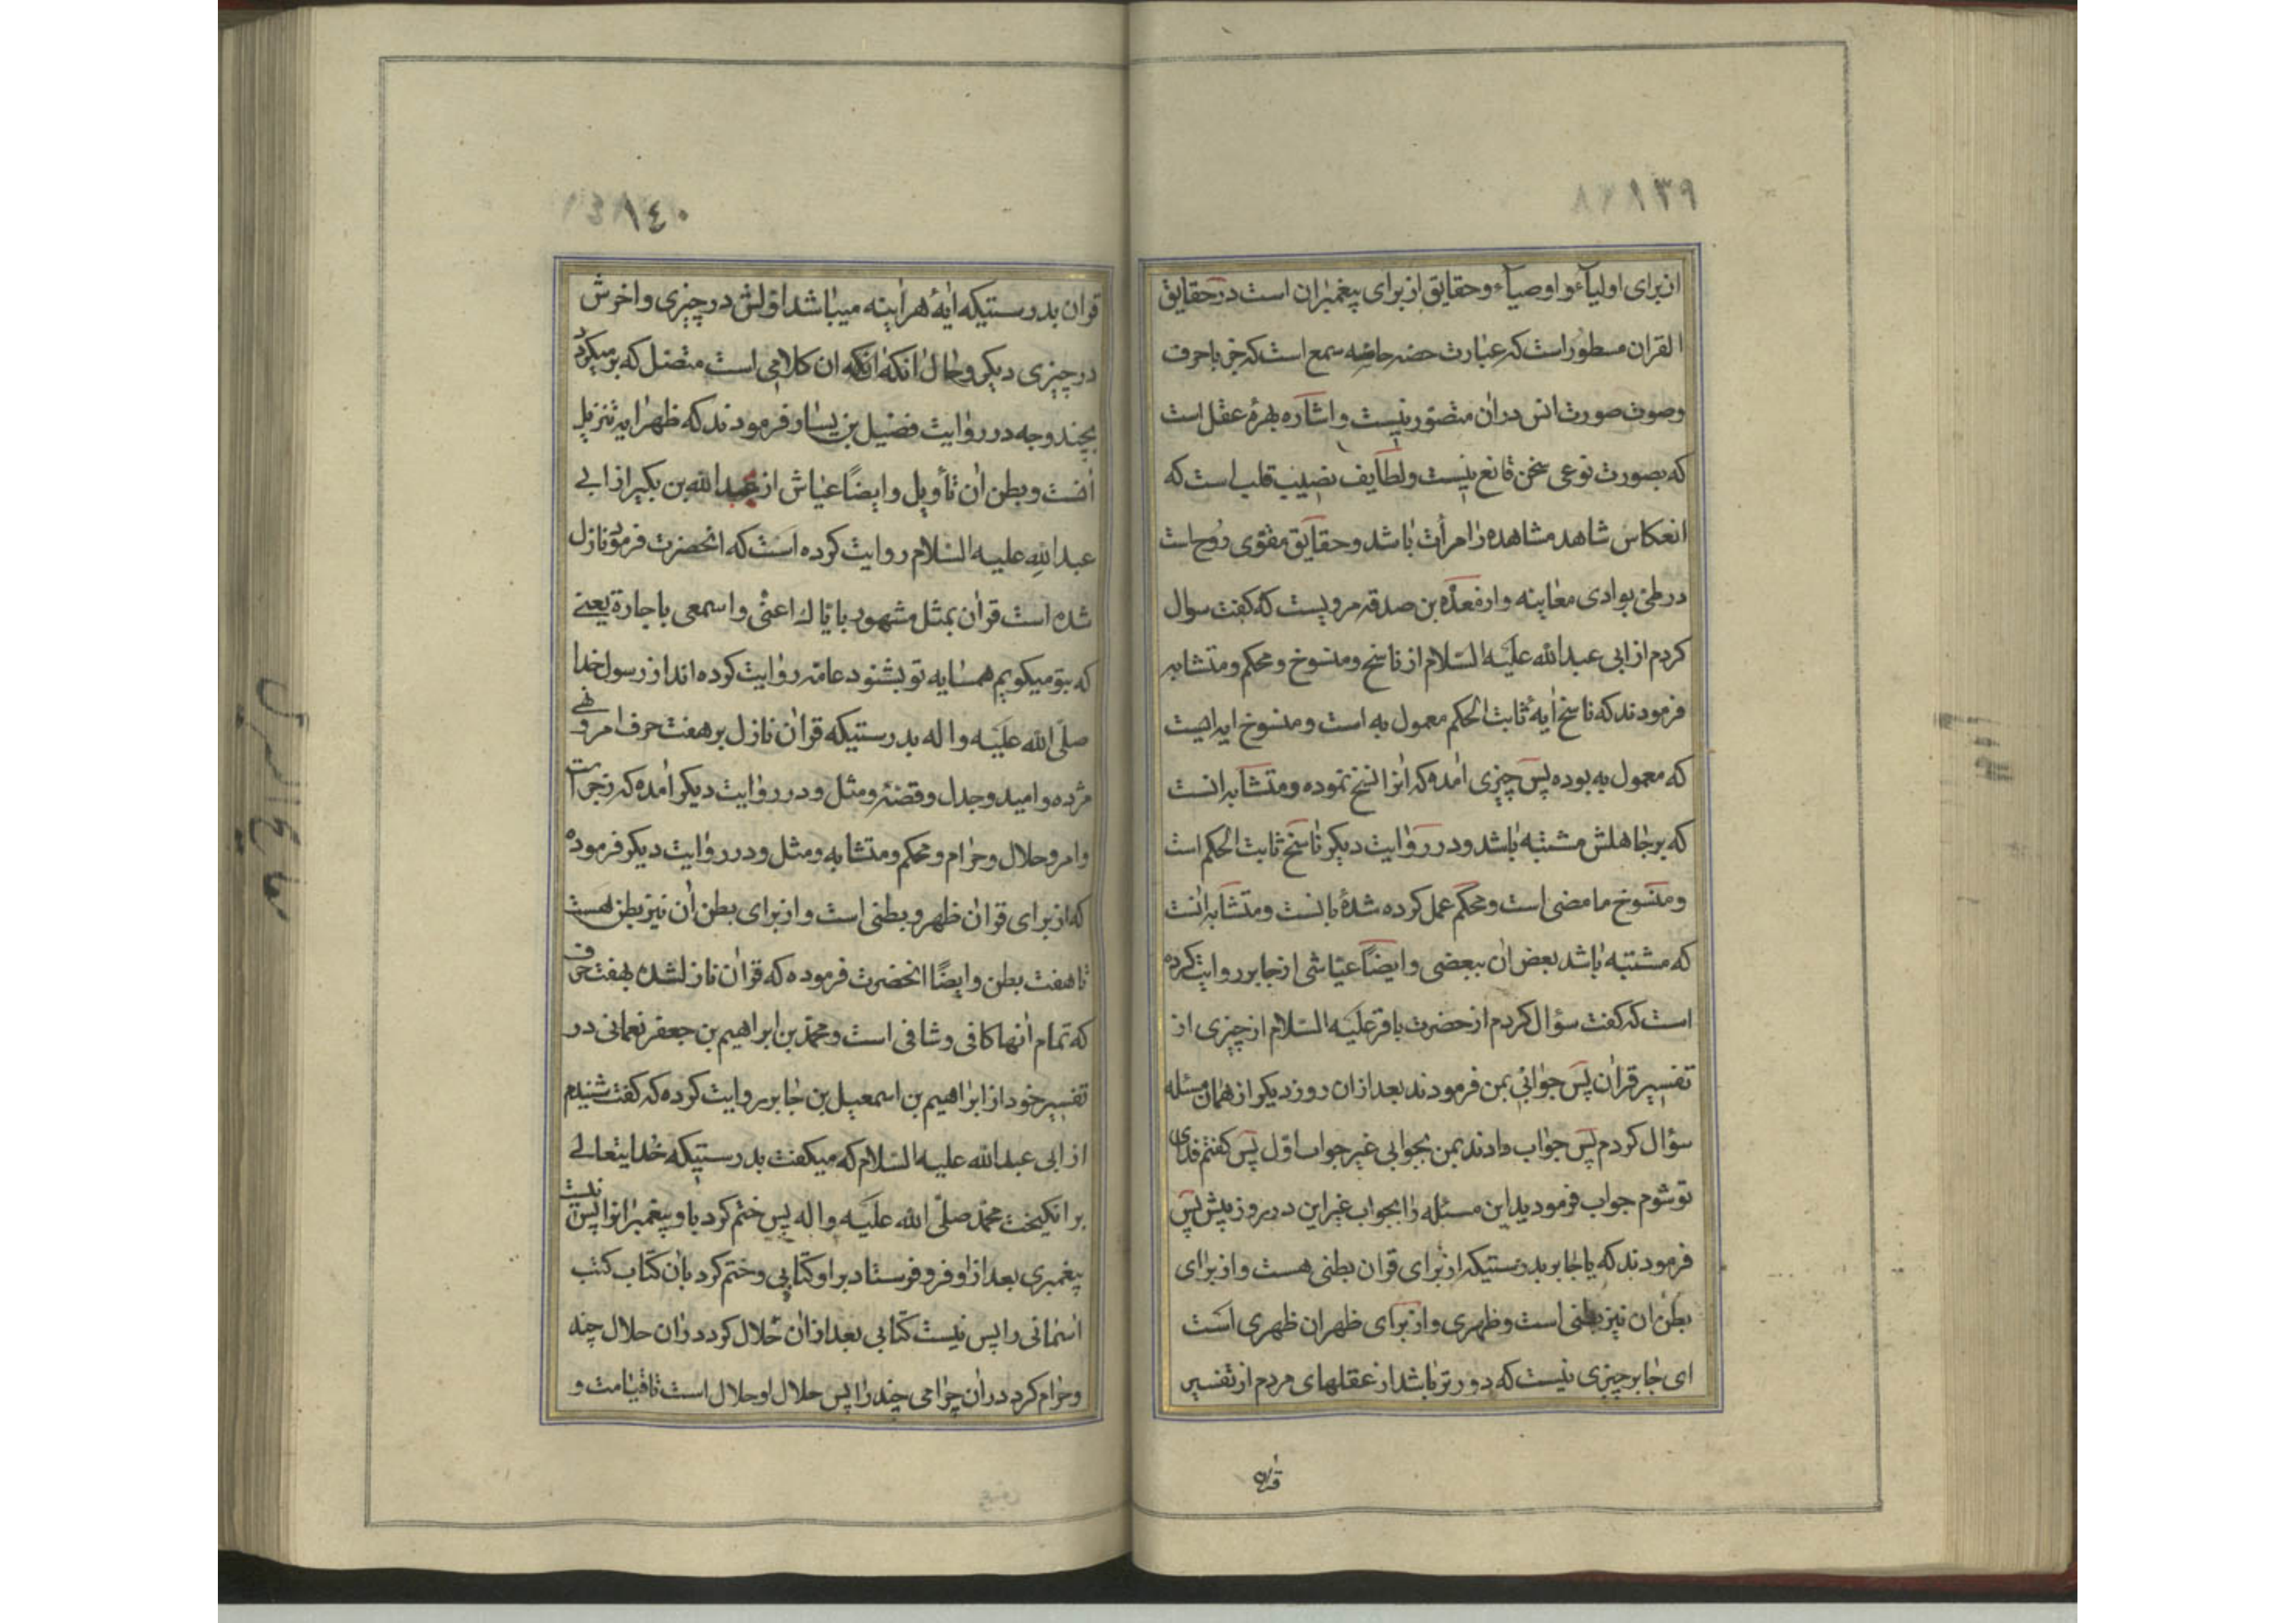 ١٣٩
ان برای اولیآء و اوصیآء و حقایق از برای پیغمبران است در حقایق
القران مسطور است که عبارت حضه حاضه سمع است که جز با حرف
وصوت صورت انس دران متصور نیست و اشاره بهرهٔ عقل است
که بصورت نوعی سخن قانع نیست ولطایف نصیب قلب است که
انعکاس شاهد مشاهده را مرأت باشد و حقایق مقوی روح است
در طی بوادی معاینه و از مسعده بن صدقه مرویست که کفت سوال
کردم از ابی عبدالله علیه السلام از ناسخ و منسوخ و محکم و متشابه
فرمودند که ناسخ ایهٔ ثابت الحکم معمول به است و منسوخ ایه ایست
که معمول به بوده پس چیزی امده که انرا نسخ نموده و متشابه انست
که بر جاهلش مشتبه باشد و در روایت دیکر ناسخ ثابت الحکم است
و منسوخ ما مضی است و محکم عمل کرده شدهٔ بانست و متشابه انست
که مشتبه باشد بعض ان ببعضی وایضاً عیاشی از جابر روایت کرده
است که کفت سؤال کردم از حضرت باقر علیه السلام از چیزی از
تفسیر قران پس جوابی بمن فرمودند بعد از ان روز دیکر از همان مسئله
سؤال کردم پس جواب دادند بمن بجوابی غیر جواب اول پس کفتم فدای
تو شوم جواب فرمودید این مسئله را بجواب غیر این در روز پیش پس
فرمودند که یا جابر بدرستیکه از برای قران بطنی هست و از برای
بطن ان نیز بطنی است و ظهری و از برای ظهر ان ظهری است
ای جابر چیزی نیست که دورتر باشد از عقلهای مردم از تفسیر
قران
١٤٠
قران بدرستیکه ایهٔ هراینه میباشد اولش در چیزی و اخرش
در چیزی دیکر و حال انکه انکه ان کلامی است متصل که بر میکردد
بچند وجه در روایت فضیل بن یسار فرمودند که ظهر ایه تنزیل
انست و بطن ان تأویل وایضاً عیاش از عبدالله بن بکیر از ابی
عبدالله علیه السلام روایت کرده است که انحضرت فرمود نازل
شده است قران بمثل مشهور بایاك اعنی واسمعی یا جارة یعنی
که بتو میکویم همسایه تو بشنود عامه روایت کرده اند از رسول خدا
صلی الله علیه واله بدرستیکه قران نازل بر هفت حرف امر و نهی
مژده و امید و جدل و قصه و مثل و در روایت دیکر امده که زجر است
وامر و حلال و حرام و محکم و متشابه و مثل و در روایت دیکر فرموده
که از برای قران ظهر و بطنی است و از برای بطن ان نیز بطن هست
تا هفت بطن وایضاً انحضرت فرموده که قران نازلشده بهفت حرف
که تمام انها کافی و شافی است و محمد بن ابراهیم بن جعفر نعمانی در
تفسیر خود از ابراهیم بن اسمعیل بن جابر روایت کرده که کفت شنیدم
از ابی عبدالله علیه السلام که میکفت بدرستیکه خدایتعالی
بر انکیخت محمد صلی الله علیه واله پس ختم کرد باو پیغمبرانرا پس نیست
پیغمبری بعد از او و فرو فرستاد بر او کتابی و ختم کرد بان کتاب کتب
اسمانی را پس نیست کتابی بعد از ان حلال کرد دران حلال چند
و حرام کرد دران حرامی چند را پس حلال او حلال است تا قیامت و